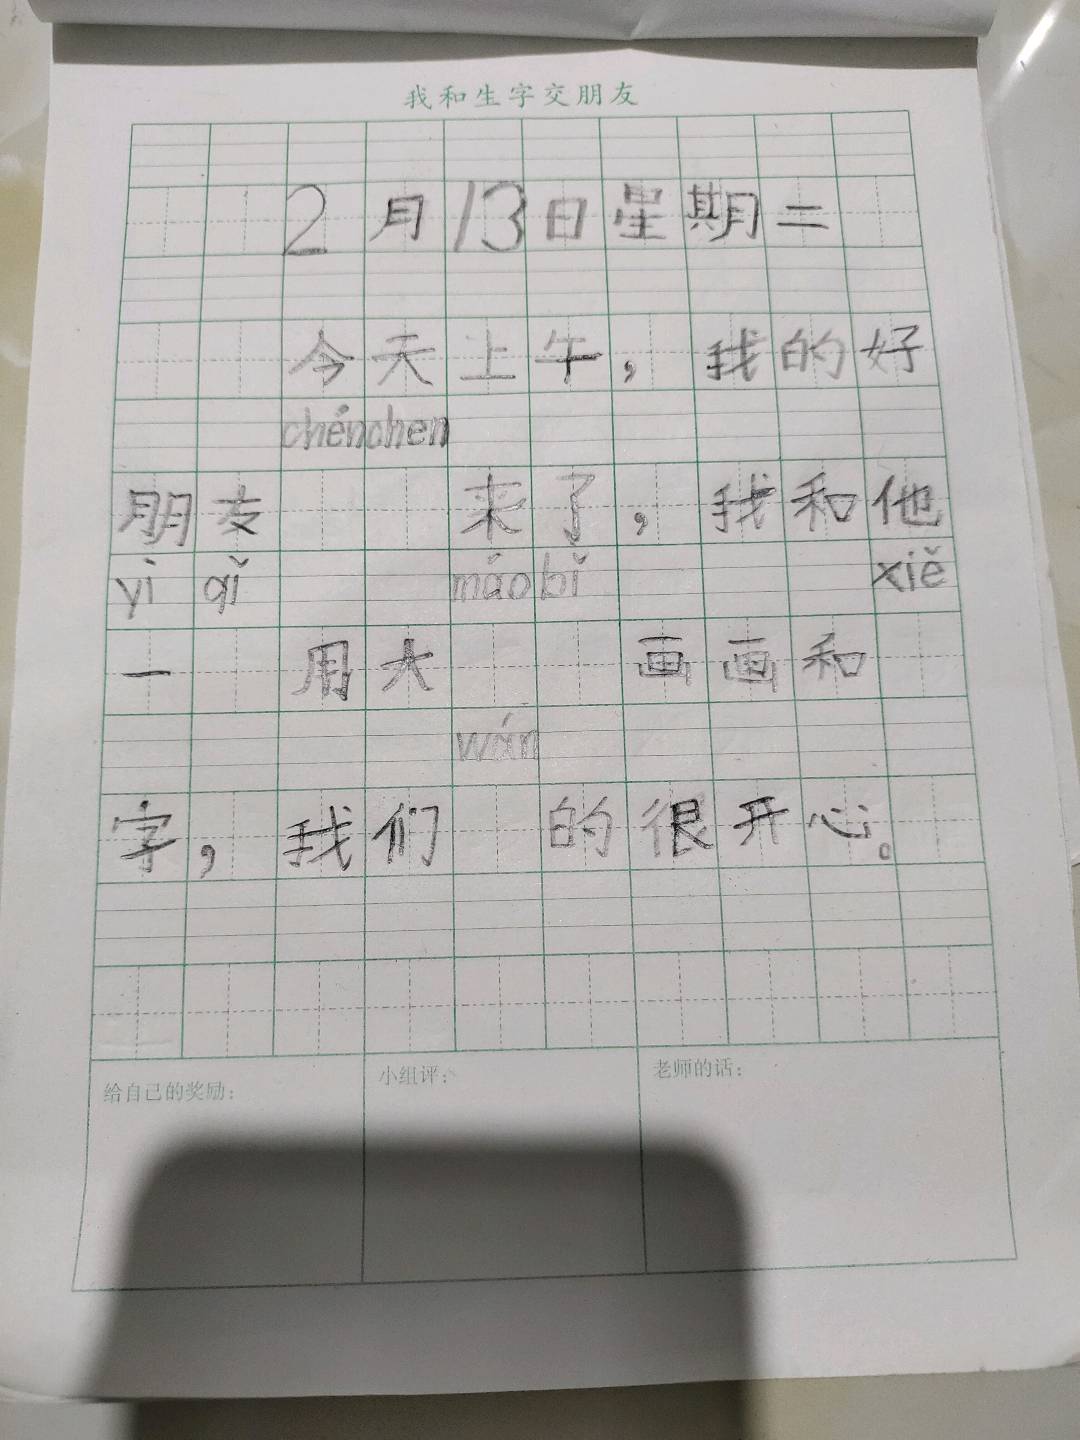 我和生字交朋友
2月13日星期二
今天上午，我的好
chénchen
朋友 来了，我和他
yì qǐ máo bǐ xiě
一 用大 画画和
wán
字，我们 的很开心。
给自己的奖励：
小组评：
老师的话：